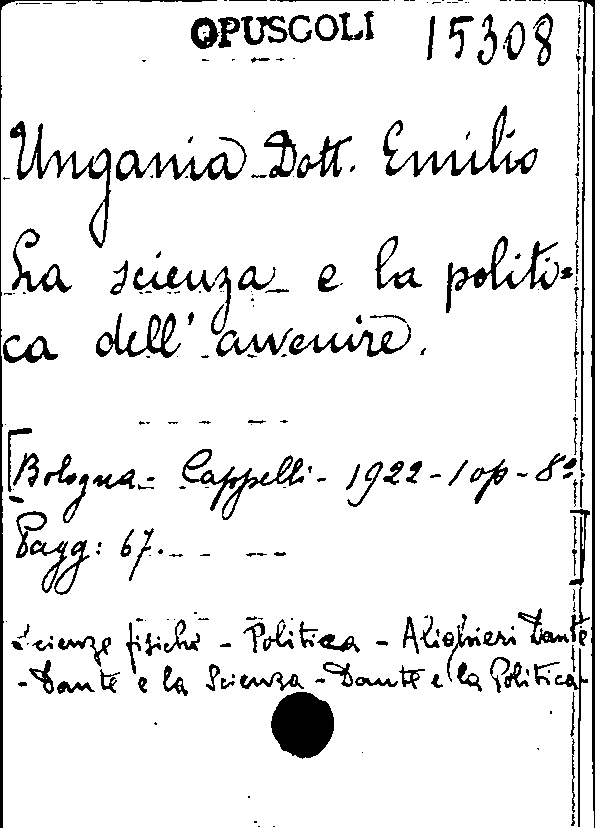 OPUSCOLI 15308
Ungania Dott. Emilio
La scienza e la politi=
ca dell'avvenire.
[Bologna - Cappelli - 1922 - 1 op - 8º
Pagg: 67. - - ]
Scienze fisiche - Politica - Alighieri Dante
- Dante e la Scienza - Dante e la Politica -